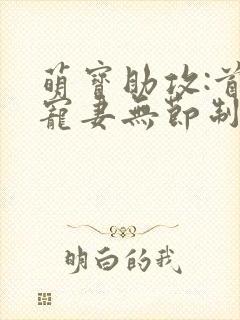 萌寶助攻:首
寵妻無節制
明白的我